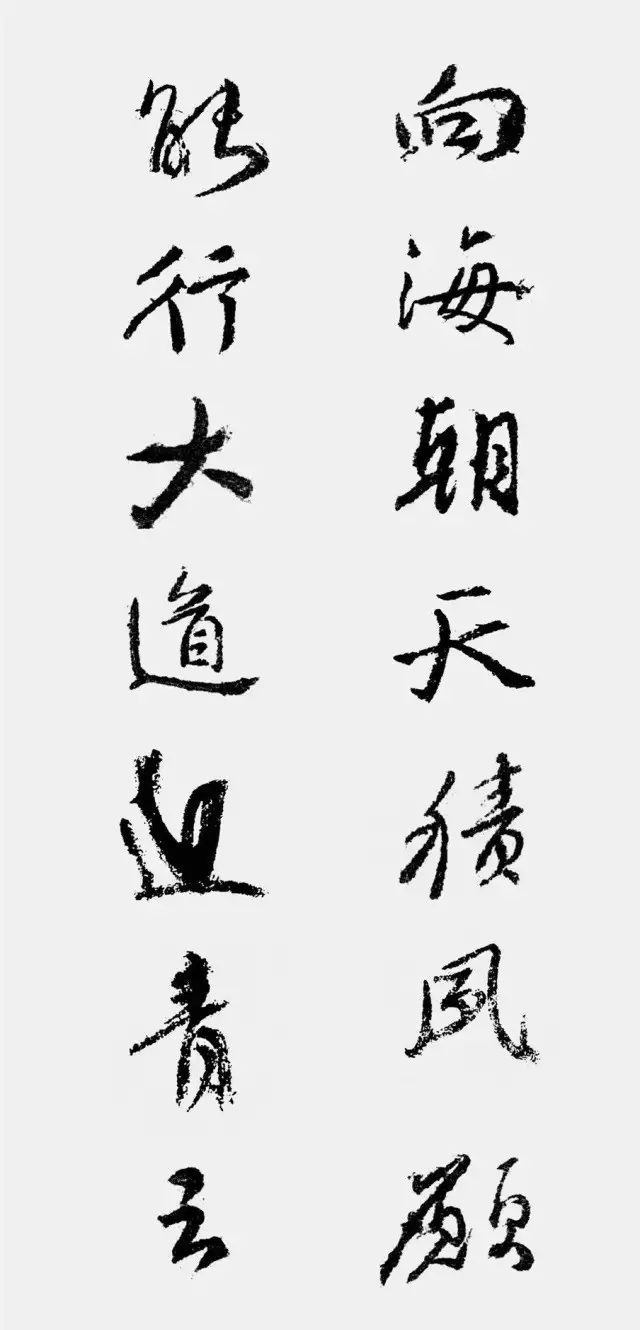 向海朝天積夙願
能行大道迎青云